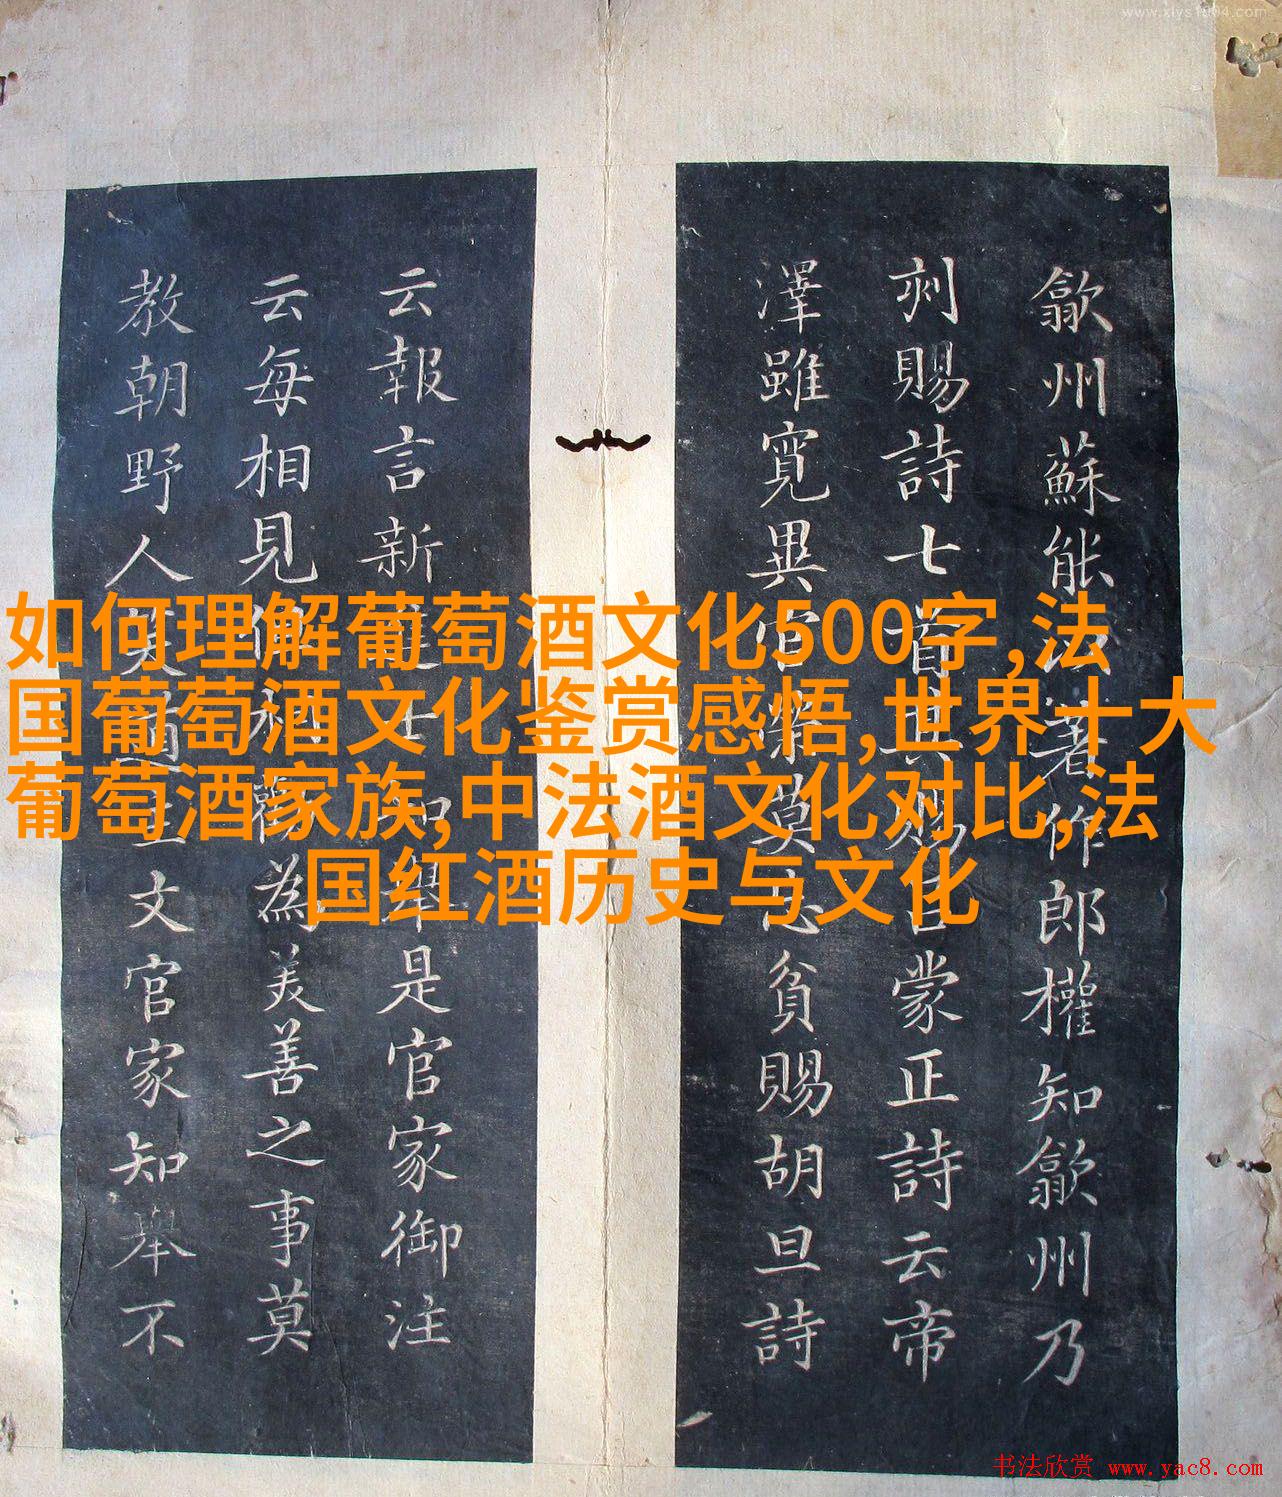 www.xiys1004.com
歙州蘇能著作郎權知歙州乃
刾賜詩七首其賜呂蒙正詩云帝
澤雖寬異官榮莫忘貧賜胡旦詩
云報言新進士知舉是官家御注
云每相見便和勸為美善之事莫
教朝野人笑道主文官家知舉不
如何理解葡萄酒文化500字,法
国葡萄酒文化鉴赏感悟,世界十大
葡萄酒家族,中法酒文化对比,法
国红酒历史与文化
书法欣赏 www.yac8.com